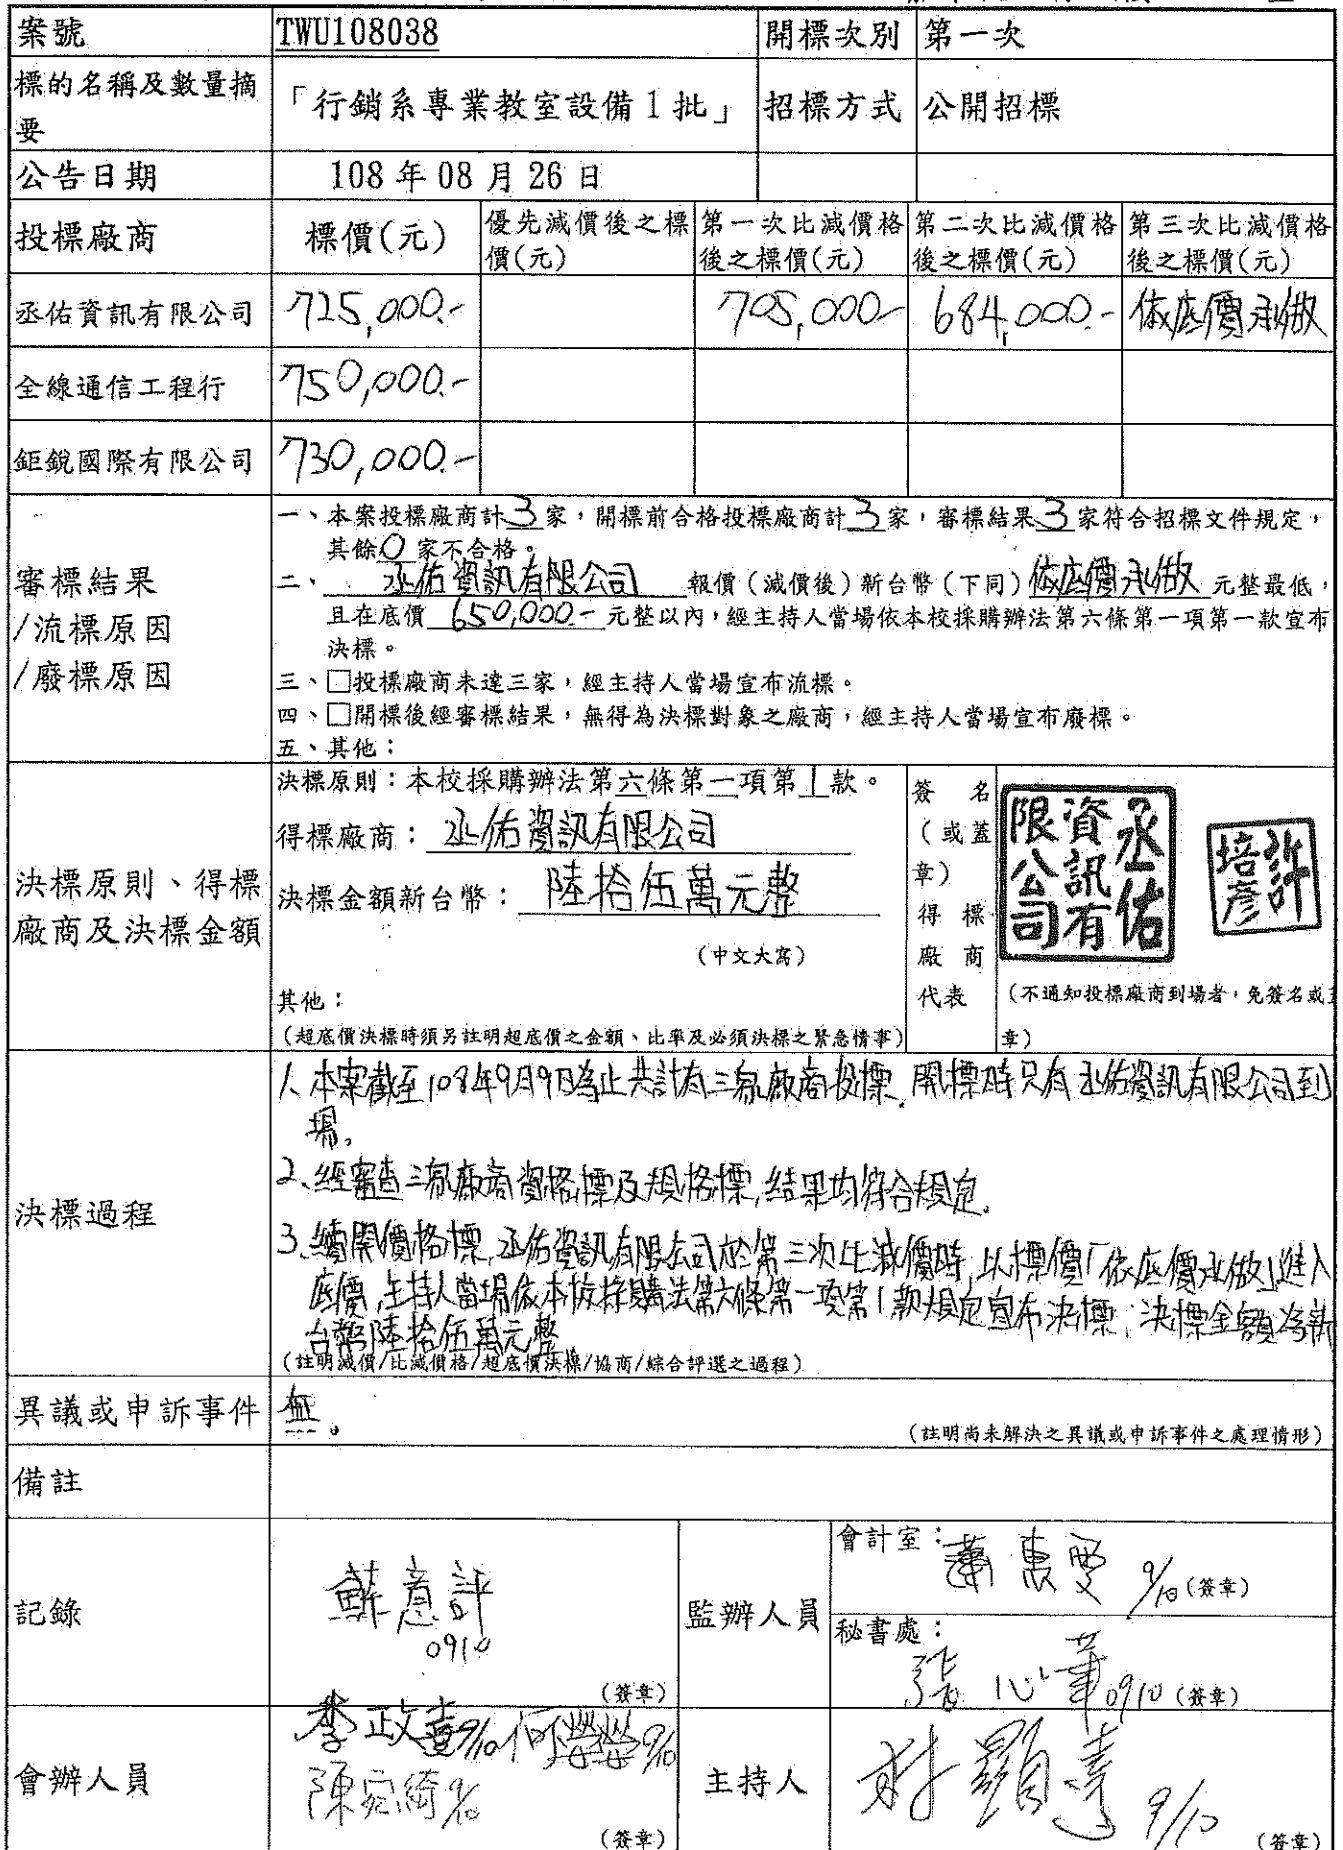 案號 TWU108038 開標次別 第一次
標的名稱及數量摘要 「行銷系專業教室設備1批」 招標方式 公開招標
公告日期 108年08月26日
投標廠商 標價(元) 優先減價後之標價(元) 第一次比減價格後之標價(元) 第二次比減價格後之標價(元) 第三次比減價格後之標價(元)
丞佑資訊有限公司 725,000.- 705,000- 684,000.- 依底價承做
全線通信工程行 750,000.-
鉅銳國際有限公司 730,000.-
審標結果
/流標原因
/廢標原因
一、本案投標廠商計3家，開標前合格投標廠商計3家，審標結果3家符合招標文件規定，
其餘0家不合格。
二、丞佑資訊有限公司 報價（減價後）新台幣（下同）依底價承做 元整最低，
且在底價 650,000.- 元整以內，經主持人當場依本校採購辦法第六條第一項第一款宣布
決標。
三、□投標廠商未達三家，經主持人當場宣布流標。
四、□開標後經審標結果，無得為決標對象之廠商，經主持人當場宣布廢標。
五、其他：
決標原則、得標
廠商及決標金額
決標原則：本校採購辦法第六條第一項第1款。
得標廠商：丞佑資訊有限公司
決標金額新台幣：陸拾伍萬元整
（中文大寫）
其他：
（超底價決標時須另註明超底價之金額、比率及必須決標之緊急情事）
簽名
（或蓋
章）
得標
廠商
代表
丞佑資訊有限公司
許培彥
（不通知投標廠商到場者，免簽名或
章）
決標過程
1、本案截至108年9月9日為止共計有三家廠商投標，開標時只有丞佑資訊有限公司到
場。
2、經審查三家廠商資格標及規格標，結果均符合規定。
3、續開價格標，丞佑資訊有限公司於第三次比減價時，以標價「依底價承做」進入
底價，主持人當場依本校採購法第六條第一項第1款規定宣布決標，決標金額為新
台幣陸拾伍萬元整。
（註明減價/比減價格/超底價決標/協商/綜合評選之過程）
異議或申訴事件 無。
（註明尚未解決之異議或申訴事件之處理情形）
備註
記錄 蘇意評
0910
（簽章）
監辦人員
會計室：蕭惠雯 9/10（簽章）
秘書處：張心華 0910（簽章）
會辦人員
李政 9/10 何 9/10
陳宛綺 9/10
（簽章）
主持人
顯 9/10
（簽章）